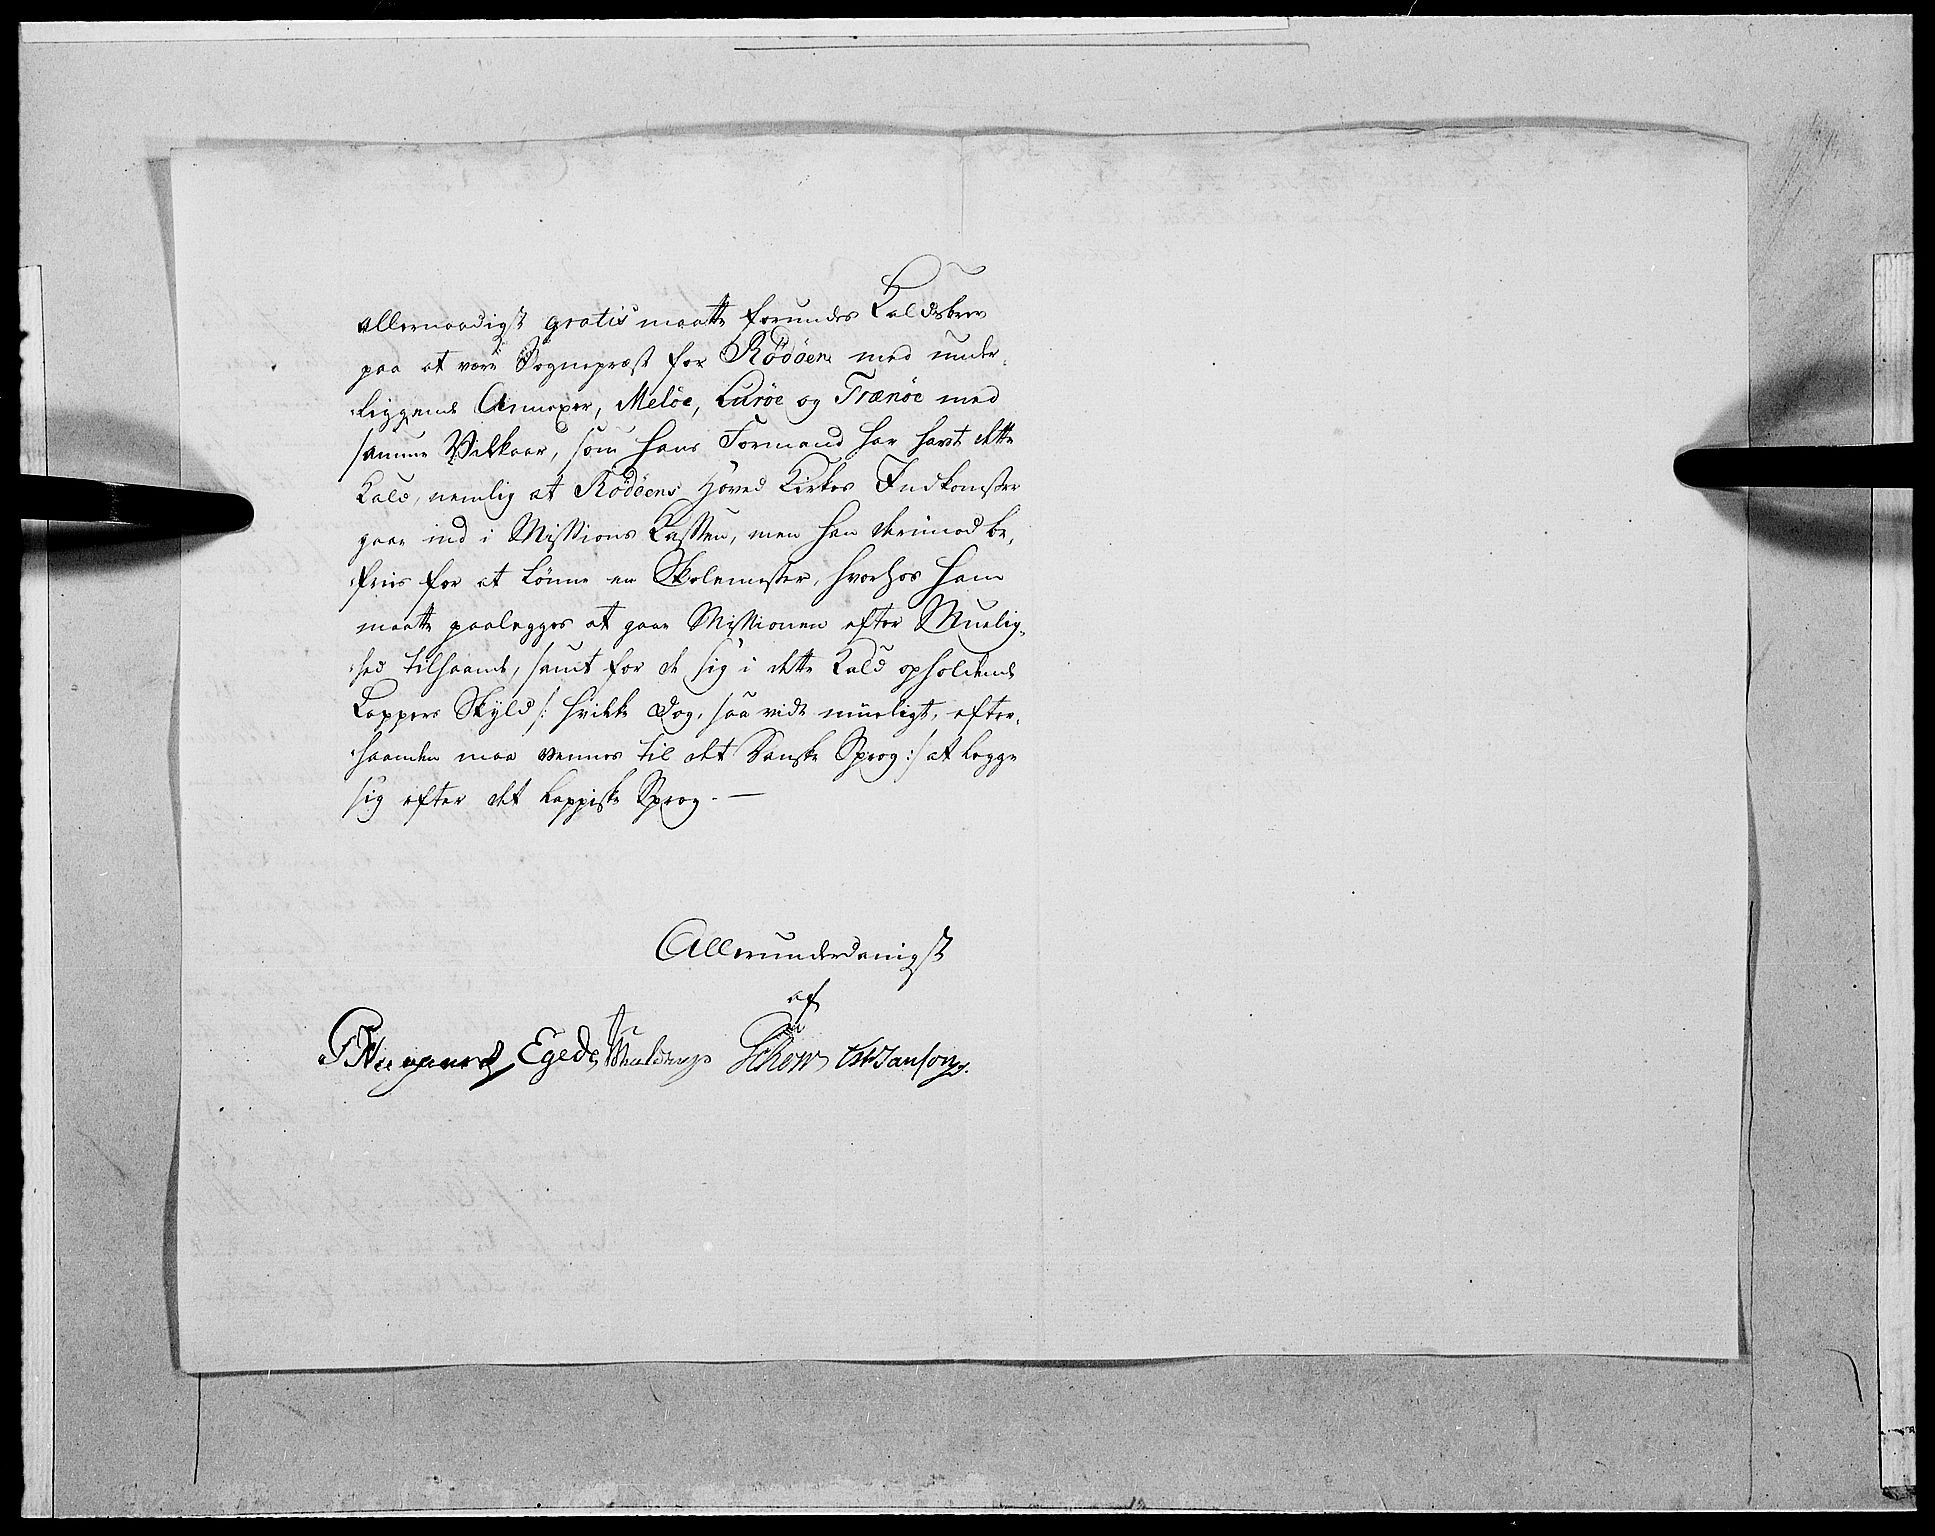 allernaadigst gratis maatte forundes Kaldsbrev
paa at være Sognepræst for Rödöen med under-
liggende Annexer, Melöe, Luröe og Trænöe med
samme Vilkaar, som hans Formand har havt dette
Kald, nemlig at Rödöens Hoved Kirkes Indkomster
gaar ind i Missions Cassen, men han derimod be-
fries for at lönne en Skolemester, hvorhos ham
maatte paalegges at gaae Missionen efter Muelig-
hed tilhaande, samt for de sig i dette Kald opholdende
Lappers Skyld /: hvilke dog, saa vidt mueligt, efter-
haanden maa vennes til det Danske Sprog :/ at legge
sig efter det Lappiske Sprog. —
Allerunderdanigst
af
Egede Schow Janson